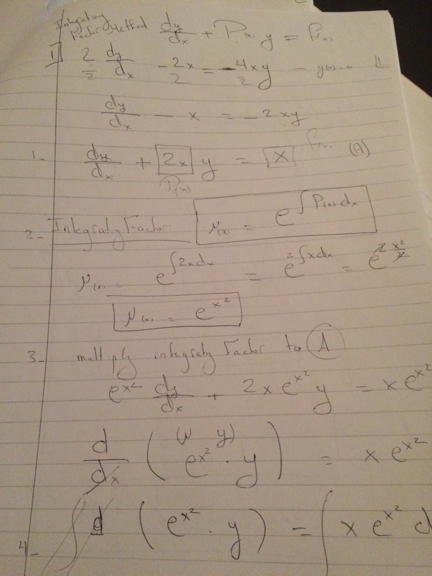 Integrating
Factor Method dy/dx + P(x) y = f(x)
1] 2/2 dy/dx - 2x/2 = -4xy/2
dy/dx - x = -2xy
1- dy/dx + 2x y = x (A)
P(x)
2- Integrating Factor μ(x) = e^∫P(x)dx
μ(x) = e^∫2xdx = e^2∫xdx = e^2 x²/2
μ(x) = e^x²
3- multiply integrating Factor to A
e^x² dy/dx + 2x e^x² y = x e^x²
d/dx ( e^x² · y ) = x e^x²
4- ∫ d ( e^x² · y ) = ∫ x e^x² d